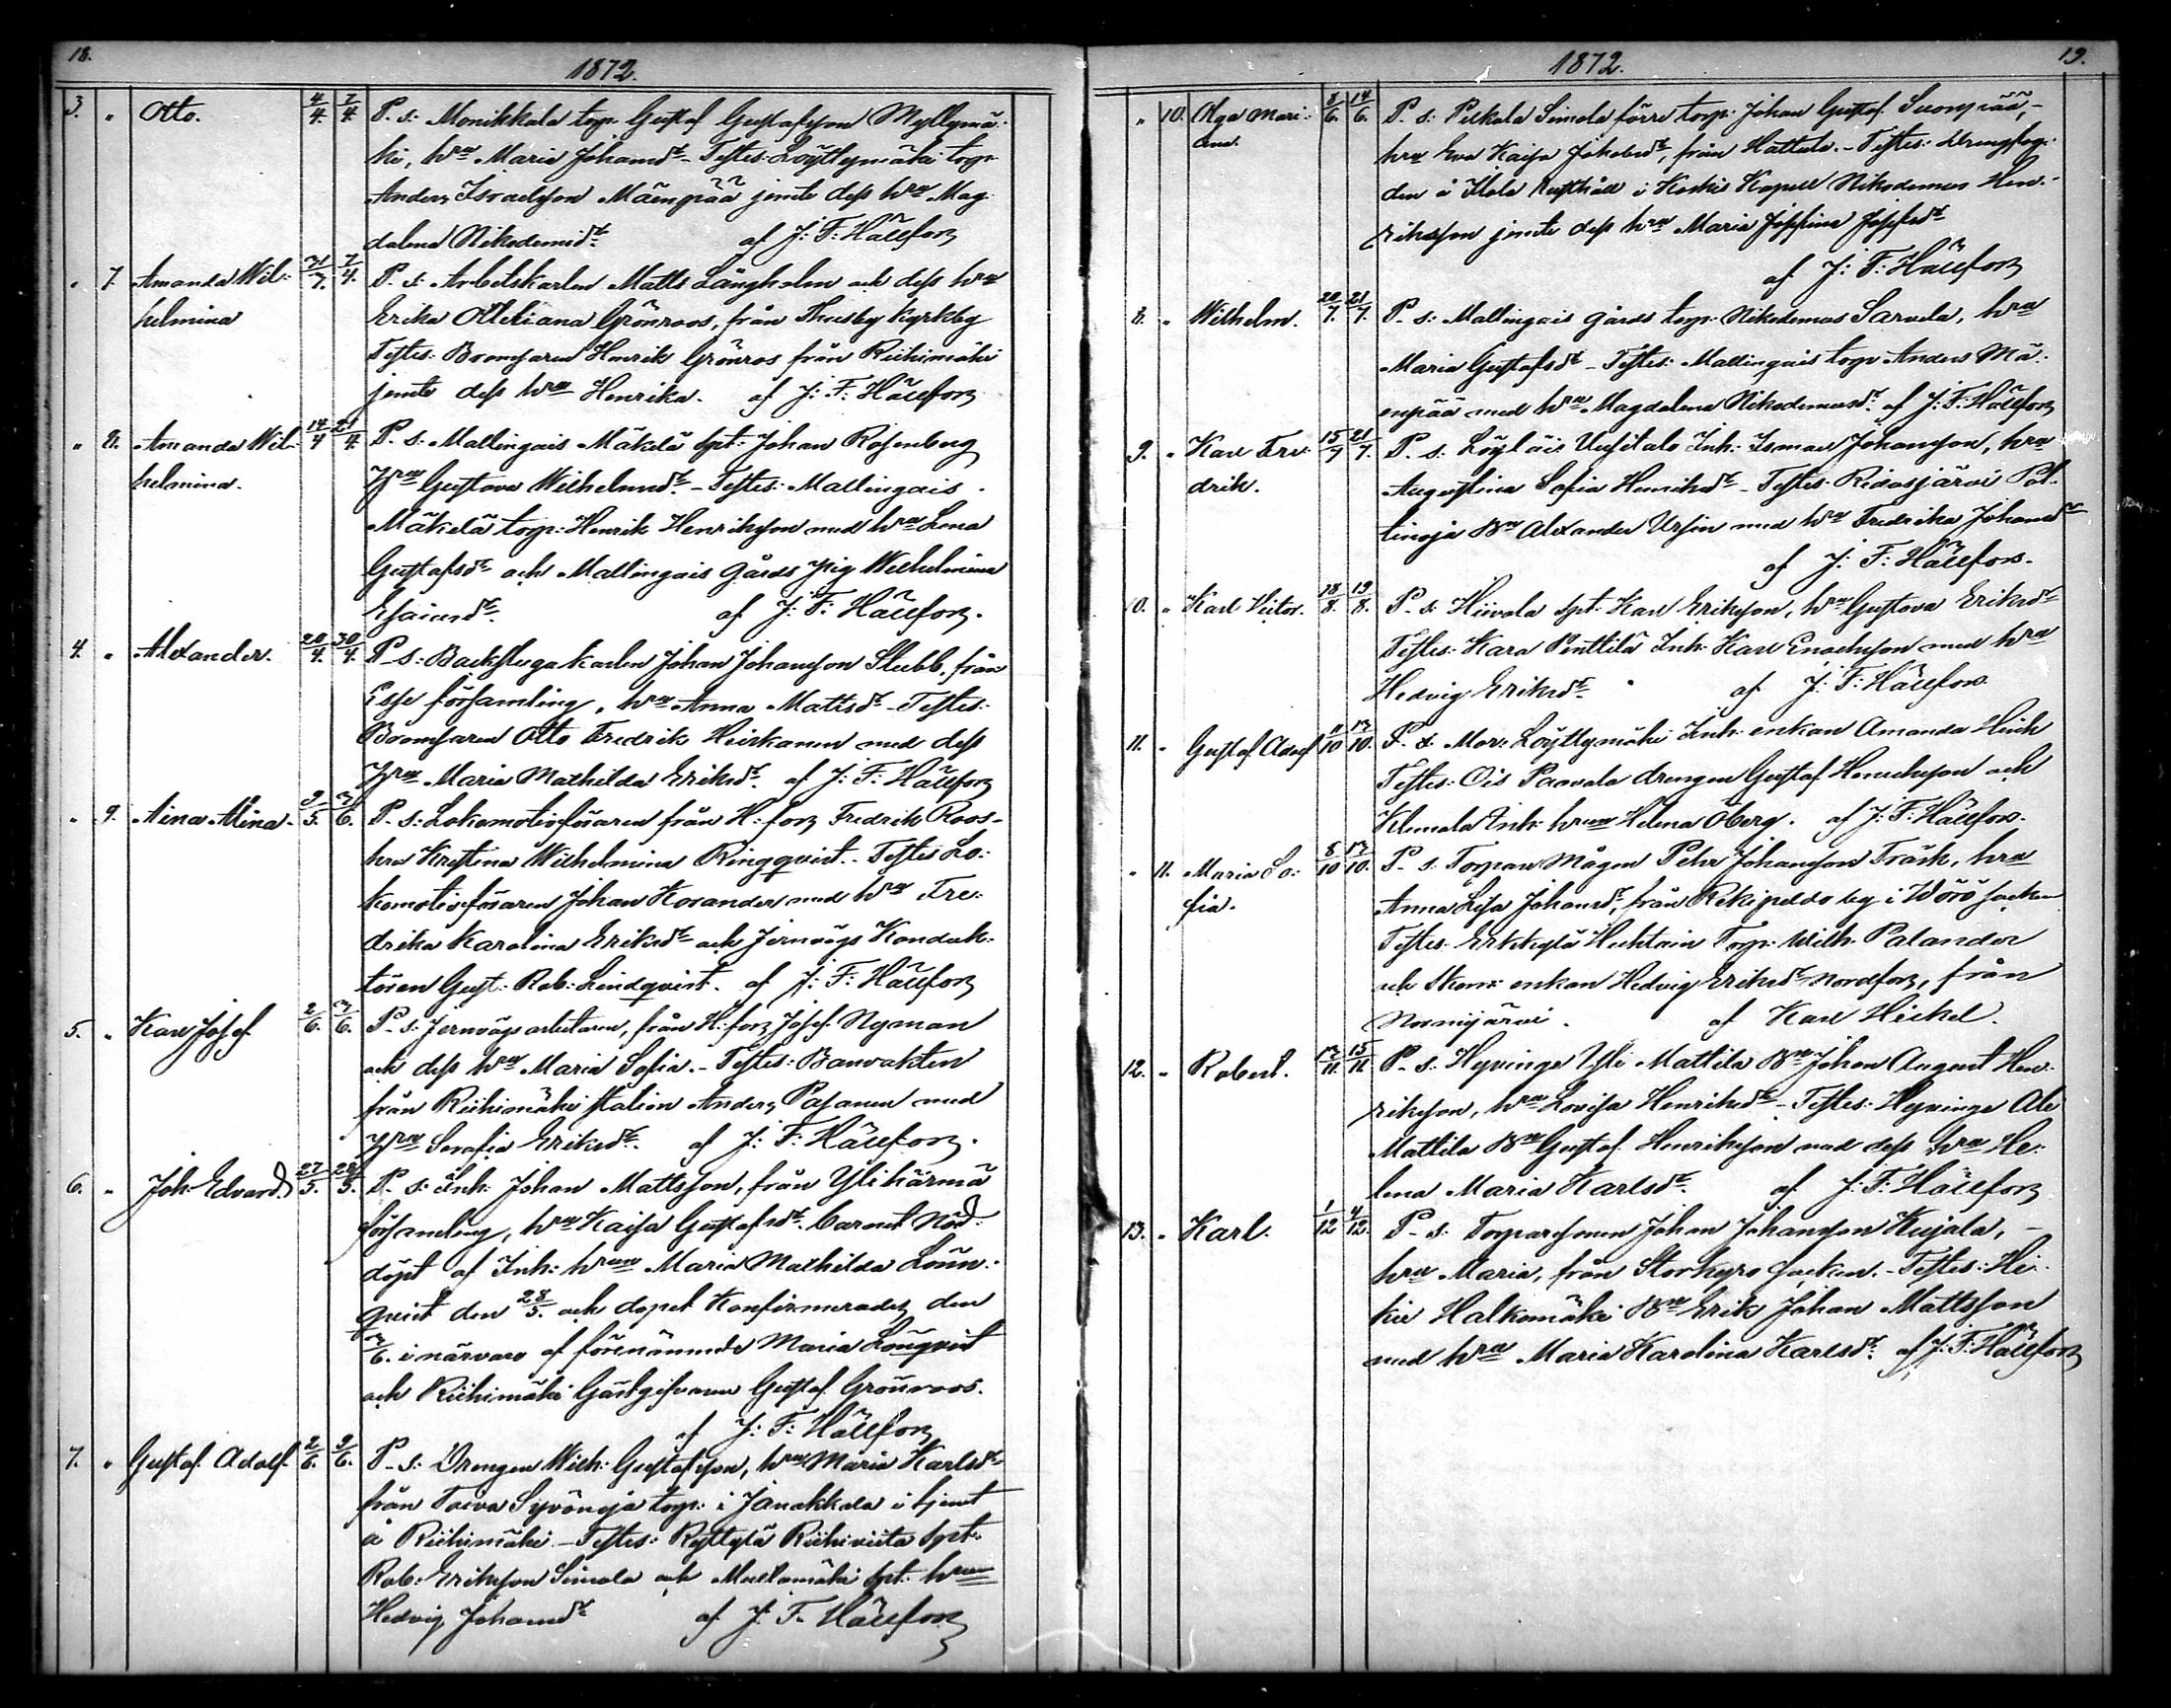 18.
1872.
3. " Otto. 4/4. 7/4. P. s: Monikkala torp. Gustaf Gustafsson Myllymä-
ki, hru Maria Johansdr - Testes: Löyttymäki torp.
Anders Israelsson Mäenpää jemte dess hru Mag-
dalena Nikodemidr. af J: F: Hällfors
" 7. Amanda Wil- 7/4. P. s: Arbetskarlen Matts Långholm och dess hru
helmina Erika Ottiliana Grönroos, från Thusby Kyrkby
Testes: Bromsaren Henrik Grönros från Riihimäki
jemte dess hru Henrika. af J: F: Hällfors
" 8. Amanda Wil- 14/4 21/4. P. s: Mallingais Mäkelä spt: Johan Rosenberg
helmina. Hru Gustava Wilhelmsdr. - Testes: Mallingais
Mäkelä torp: Henrik Henriksson med hru Lena
Gustafsdr och Mallingais Gårds pig Wilhelmina
Esaiasdr. af J: F: Hällfors.
4. " Alexander. 20/4. 30/4. P. s: Backstuga karlen Johan Johansson Stubb, från
Esse församling, hru Anna Mattsdr - Testes:
Bromsaren Otto Fredrik Heiskanen med dess
Hru Maria Mathilda Eriksdr. af J: F: Hällfors
" 9. Aina Alina. 9/5. 3/6. P. s: Lokomotivföraren från H:fors Fredrik Roos-
hru Kristina Wilhelmina Ringqvist. - Testes Lo-
komotivföraren Johan Kosander med hru Fre-
drika Karolina Eriksdr och Jernvägs Konduk-
tören Gust: Rob: Lindqvist. af J: F: Hällfors
5. " Karl Josef 2/6. 3/6. P. s: Jernvägsarbetaren, från H:fors Josef Nyman
och dess hru Maria Sofia. - Testes: Banvakten
från Riihimäki station Anders Pasanen med
Hru Serafia Eriksdr. af J: F: Hällfors.
6. " Joh: Edvard 27/5. 28/5. P. s: Inh: Johan Mattsson, från Ylihärmä
församling, hru Kaisa Gustafsdr. barnet Nöd-
döpt af Inh: hrun Maria Mathilda Lönn-
qvist den 28/5. och dopet Konfirmerades den
3/6. i närvaro af förenämnde Maria Lönqvist
och Riihimäki Gästgifvaren Gustaf Grönroos.
af J: F: Hällfors
7. " Gustaf Adolf 2/6. 9/6. P. s: Drengen Wilh: Gustafsson, hru Maria Karlsdr
från Torva Syvänoja torp: i Janakkala i tjenst
å Riihimäki. - Testes: Ryttylä Riihiviita spt:
Rob: Eriksson Simola och Multamäki spt: hrun
Hedvig Johansdr af J: F: Hällfors
1872.
19.
" 10. Olga Mari- 8/6. 14/6. P. s: Pirkala Simola förre torp: Johan Gustaf Suonpää, -
ana. hru Eva Kaisa Jakobsdr, från Hattula. - Testes:
den å Etola Rusthåll i Koskis Kapell Nikodemus Hen-
riksson jemte dess hru Maria Josefina Josefsdr
af J: F: Hällfors
8. " Wilhelm. 20/7. 21/7. P. s: Mallingais gårds torp: Nikodemus Sarvela, hru
Maria Gustafsdr - Testes: Mallingais torp Anders Mä-
enpää med hru Magdalena Nikodemusdr. af J: F: Hällfors
9. " Karl Fre- 15/7 21/7. P. s: Löyläis Uusitalo Inh: Ismael Johansson, hru
drik. Augustina Sofia Henriksdr - Testes: Ridasjärvi Pal-
tinoja Bn Alexander Ursin med hru Fredrika Johansdr
af J: F: Hällfors.
10. " Karl Victor. 18/8. 19/8. P. s: Hiivola spt: Karl Eriksson, hru Gustava Eriksdr
Testes: Kara Penttilä Inh: Karl Enochsson med hru
Hedvig Eriksdr. af J: F: Hällfors.
11. " Gustaf Adolf 11/10 13/10. P. s. Mor: Löyttymäki Inh: enkan Amanda
Testes: Ois Paavola drengen Gustaf Henriksson och
Klemola Inh: hrun Helena Öberg. af J: F: Hällfors.
" 11. Maria So- 8/10 13/10. P. s: Torpare Mågen Pehr Johansson Träsk, hru
fia. Anna Lisa Johansdr, från Rekipeldo by i Wörö socken
Testes: Erkkylä Huhtain Torp: Wilh: Palander
och Skom: enkan Hedvig Eriksdr Nordfors, från
Nurmijärvi. af Karl Hickel.
12. " Robert. 13/11. 15/11. P. s: Hyvinge Yli Mattila Bn Johan August Hen-
riksson, hru Lovisa Henriksdr - Testes: Hyvinge Ali
Mattila Bn Gustaf Henriksson med dess hru He-
lena Maria Karlsdr. af J: F: Hällfors
13. " Karl. 1/12 4/12. P. s: Torparesonen Johan Johansson Kujala, -
hru Maria, från Storkyro socken. - Testes: Hi-
kiä Halkomäki Bn Erik Johan Mattsson
med hru Maria Karolina Karlsdr. af J: F: Hällfors